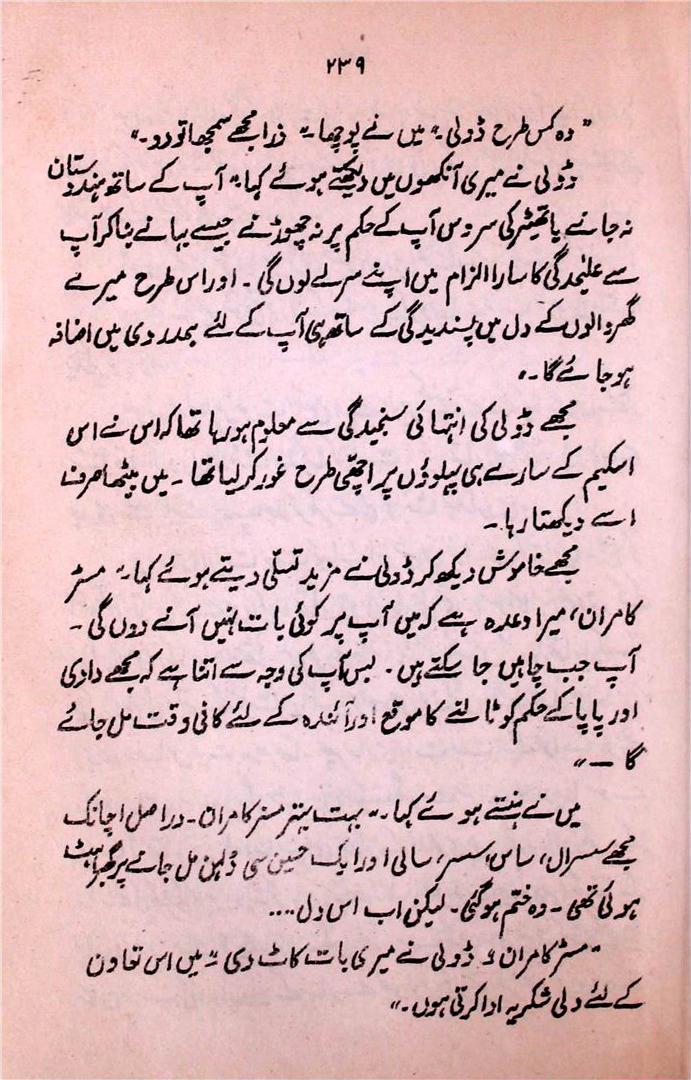 ۲۳۹
"وہ کس طرح ڈولی۔" میں نے پوچھا۔" ذرا مجھے سمجھا تو دو۔"
ڈولی نے میری آنکھوں میں دیکھتے ہوئے کہا۔" آپ کے ساتھ ہندوستان
نہ جانے یا تھیٹر کی سروس آپ کے حکم پر نہ چھوڑنے جیسے بہانے بنا کر آپ
سے علیٰحدگی کا سارا الزام میں اپنے سر لے لوں گی۔ اور اس طرح میرے
گھر والوں کے دل میں پسندیدگی کے ساتھ ہی آپ کے لئے ہمدردی میں اضافہ
ہو جائے گا۔"
مجھے ڈولی کی انتہائی سنجیدگی سے معلوم ہو رہا تھا کہ اس نے اس
اسکیم کے سارے ہی پہلوؤں پر اچھی طرح غور کر لیا تھا۔ میں بیٹھا صرف
اسے دیکھتا رہا۔
مجھے خاموش دیکھ کر ڈولی نے مزید تسلّی دیتے ہوئے کہا۔" مسٹر
کامران، میرا وعدہ ہے کہ میں آپ پر کوئی بات نہیں آنے دوں گی۔
آپ جب چاہیں جا سکتے ہیں۔ بس آپ کی وجہ سے اتنا ہے کہ مجھے دادی
اور پاپا کے حکم کو ٹالنے کا موقع اور آئندہ کے لئے کافی وقت مل جائے
گا —"
میں نے ہنستے ہوئے کہا۔" بہت بہتر مسٹر کامران۔ دراصل اچانک
مجھے سسرال، ساس، سسر، سالی اور ایک حسین سی دُلہن مل جانے پر گھبراہٹ
ہوئی تھی۔ وہ ختم ہو گئی۔ لیکن اب اس دل....
"مسٹر کامران" ڈولی نے میری بات کاٹ دی "میں اس تعاون
کے لئے دلی شکریہ ادا کرتی ہوں۔"